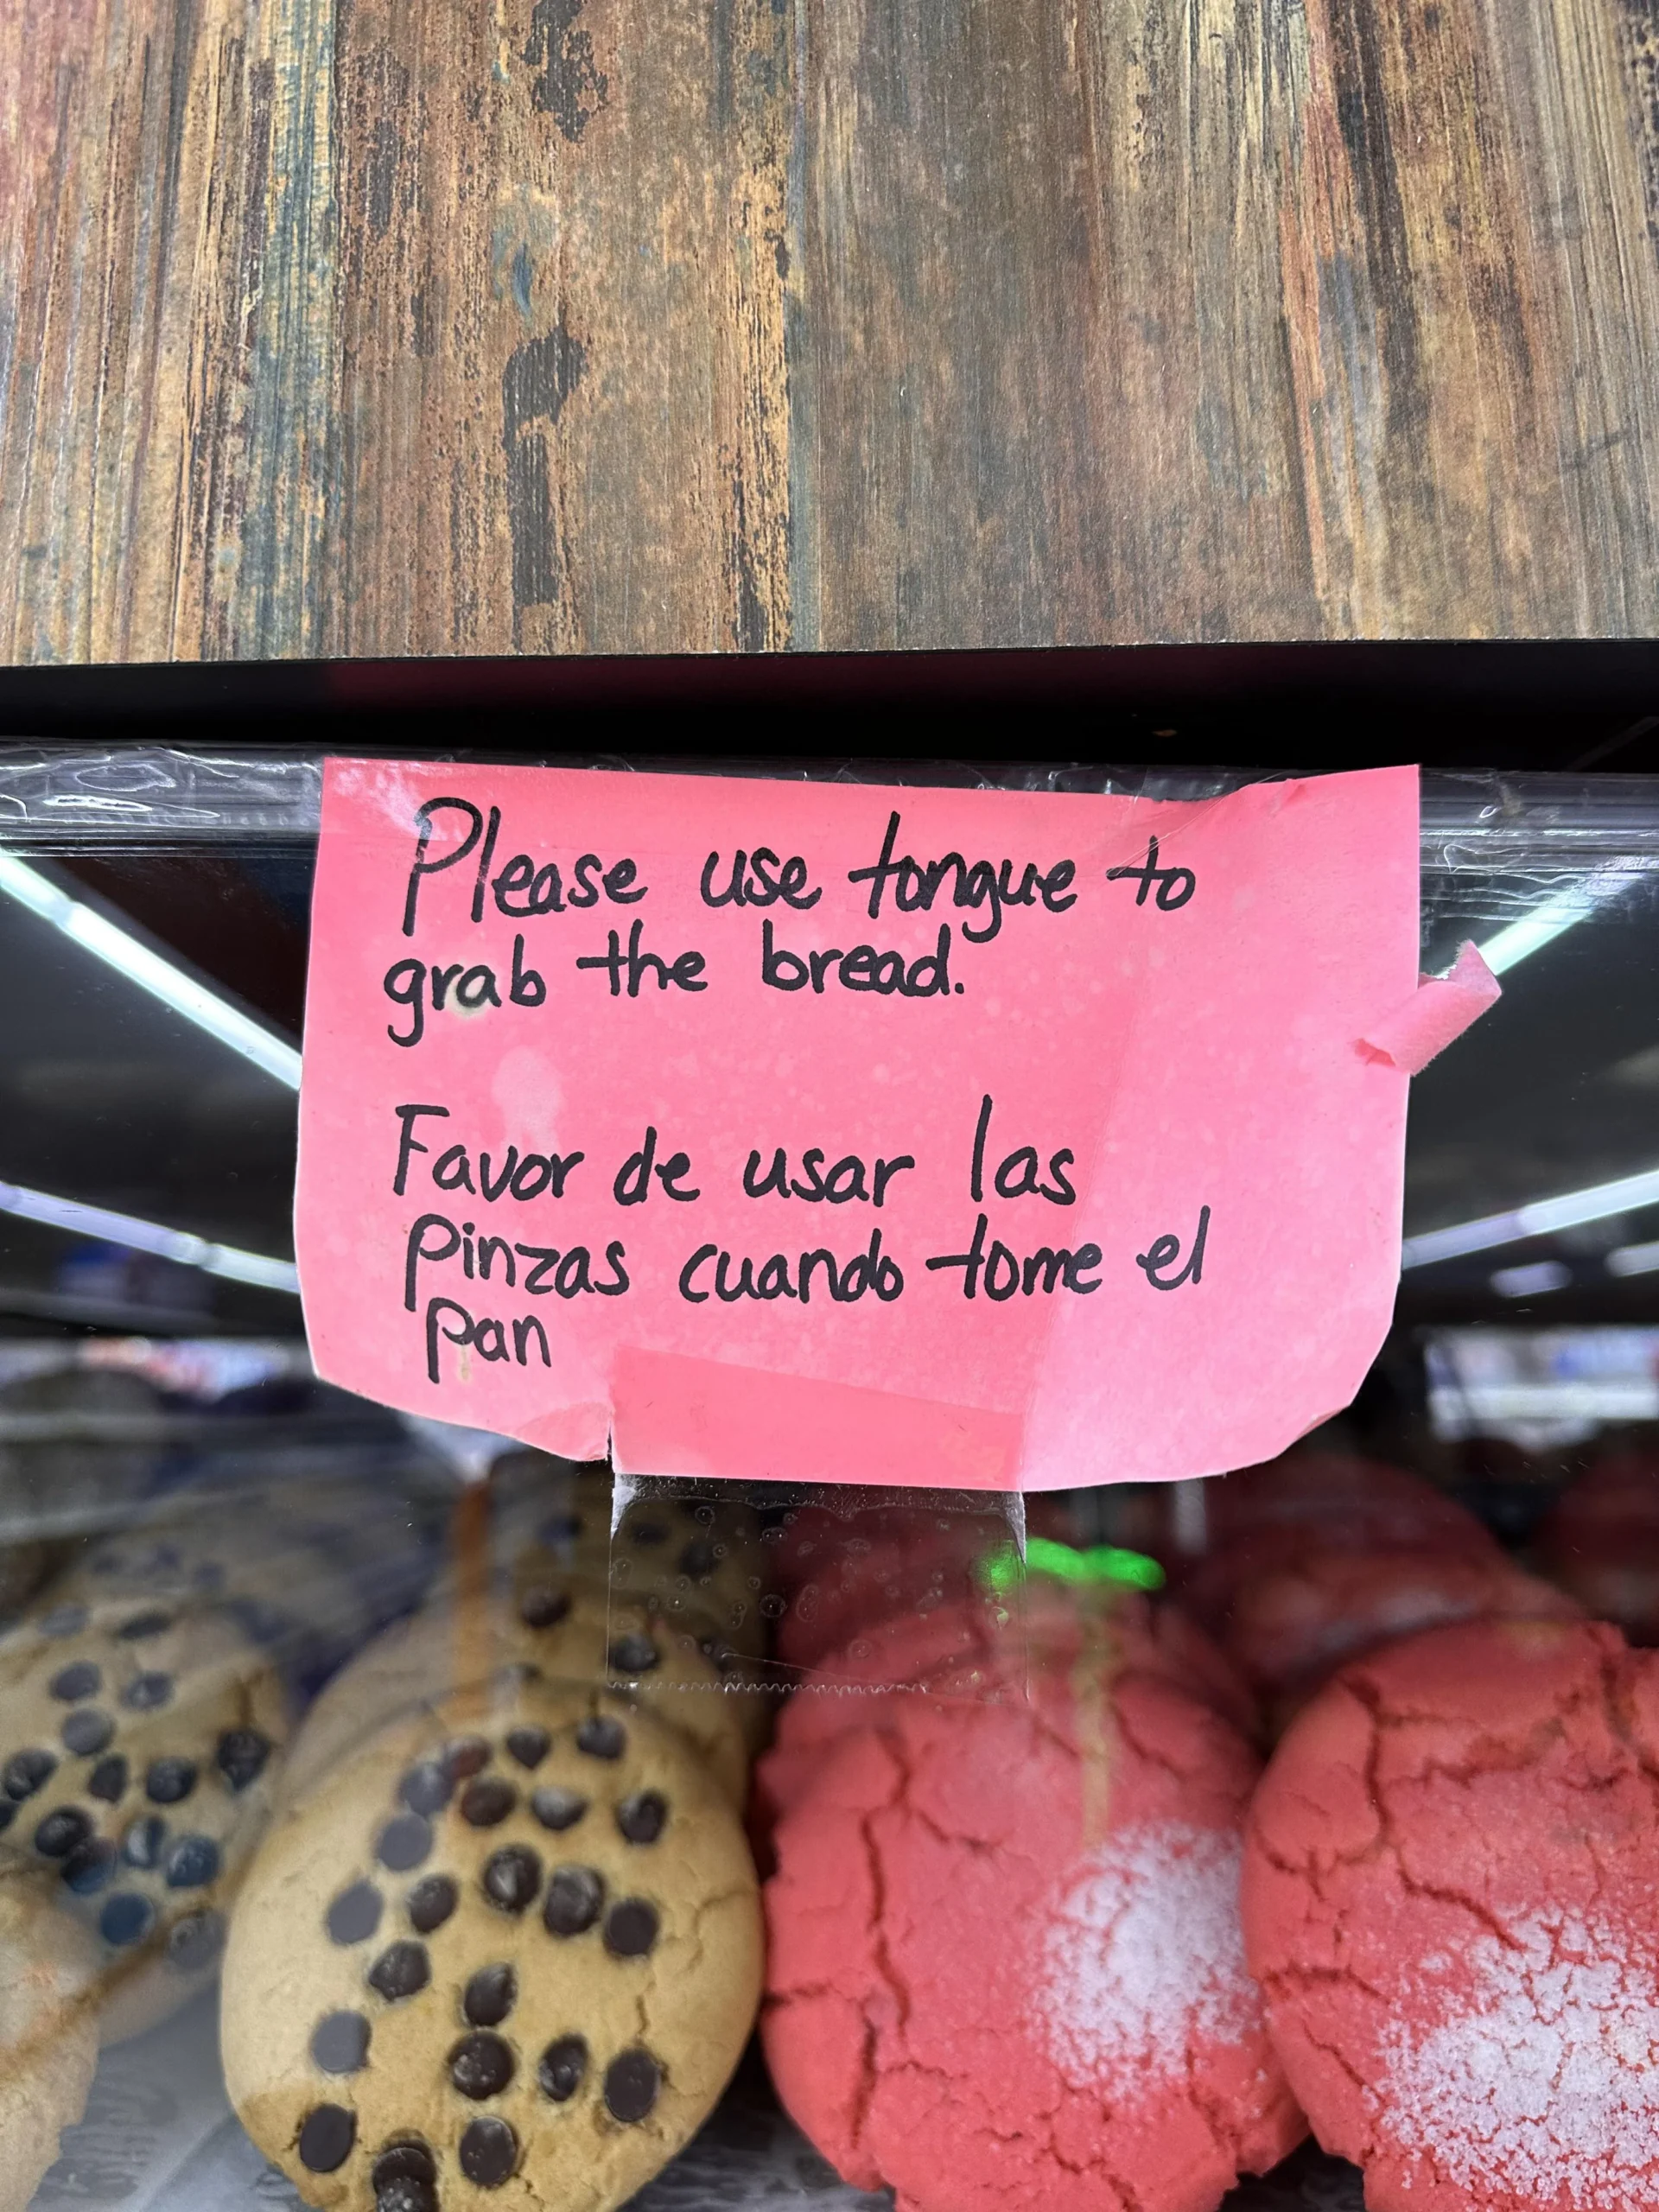 Please use tongue to
grab the bread.
Favor de usar las
pinzas cuando tome el
pan